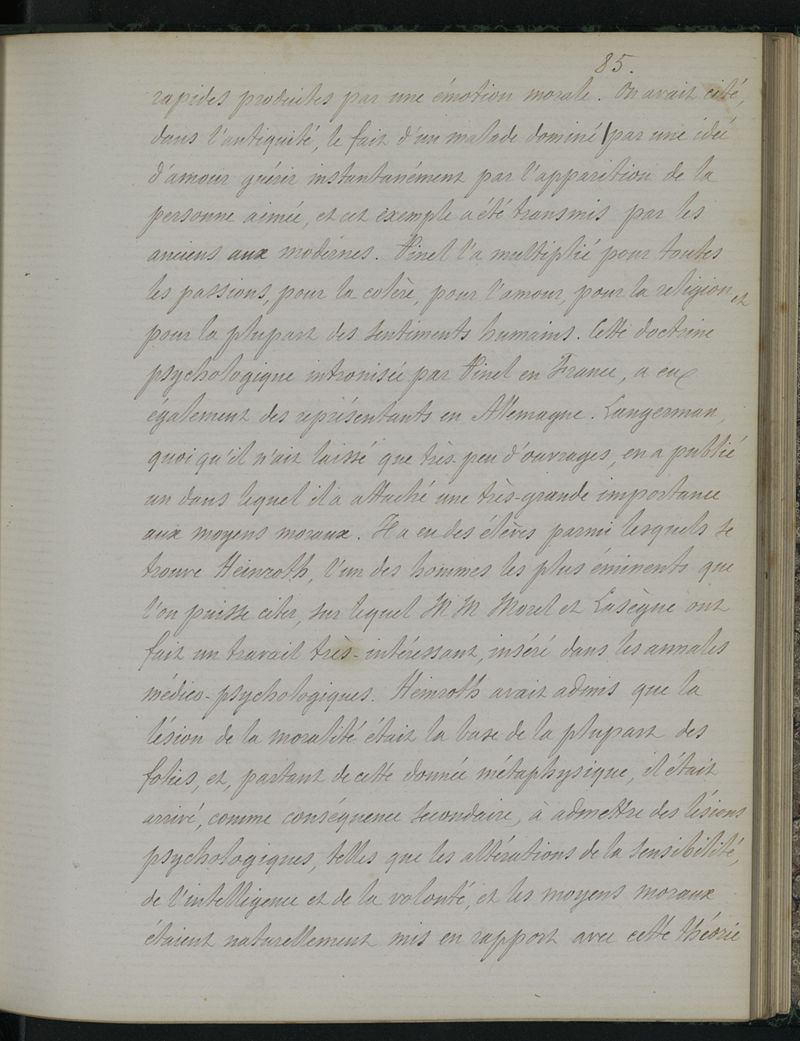 85.
rapides produites par une émotion morale. On avait cité,
dans l'antiquité, le fait d'un malade dominé par une idée
d'amour guérir instantanément par l'apparition de la
personne aimée, et cet exemple a été transmis par les
anciens aux modernes. Pinel l'a multiplié pour toutes
les passions, pour la colère, pour l'amour, pour la religion et
pour la plupart des sentiments humains. Cette doctrine
psychologique intronisée par Pinel en France, a eu
également des représentants en Allemagne. Langerman,
quoiqu'il n'ait laissé que très-peu d'ouvrages, en a publié
un dans lequel il a attaché une très-grande importance
aux moyens moraux. Il a eu des élèves parmi lesquels se
trouve Heinroth, l'un des hommes les plus éminents que
l'on puisse citer, sur lequel M M Morel et Lasègue ont
fait un travail très-intéressant, inséré dans les annales
médico-psychologiques. Heinroth avait admis que la
lésion de la moralité était la base de la plupart des
folies, et, partant de cette donnée métaphysique, il était
arrivé, comme conséquence secondaire, à admettre des lésions
psychologiques, telles que les altérations de la sensibilité,
de l'intelligence et de la volonté, et les moyens moraux
étaient naturellement mis en rapport avec cette théorie